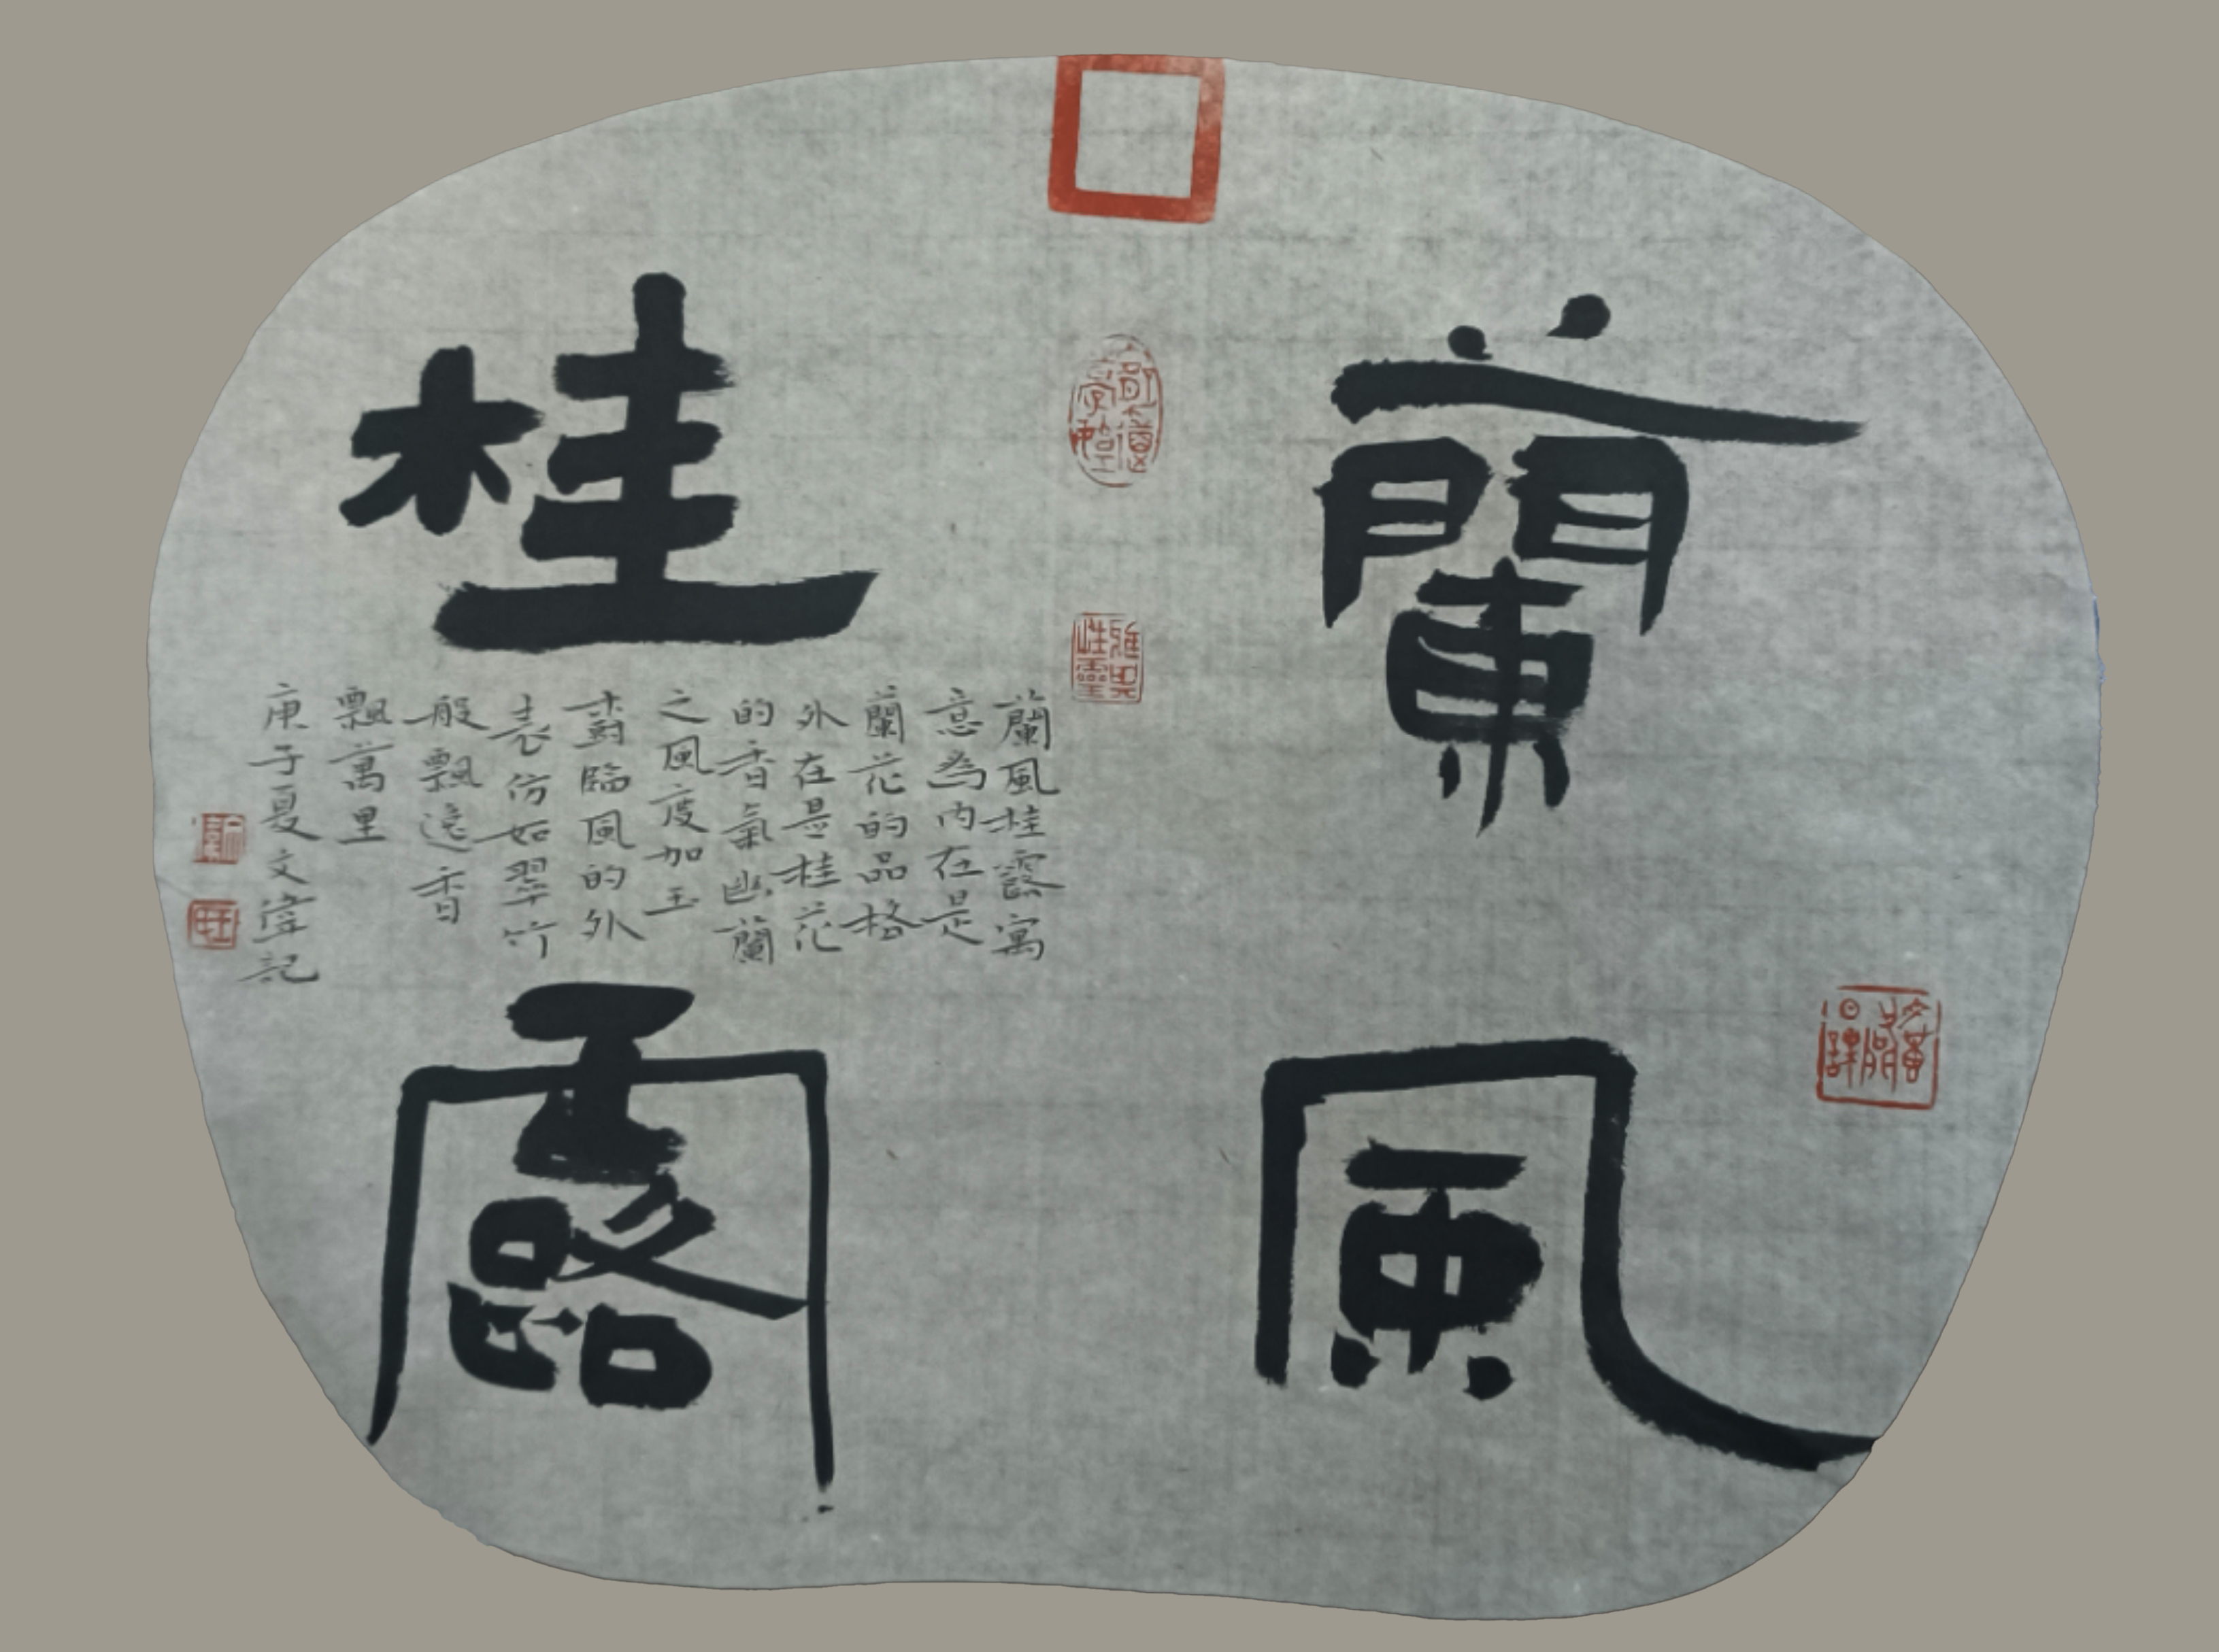 蘭風
桂露
蘭風桂露寓
意為內在是
蘭花的品格
外在是桂花
的香氣幽蘭
之風度如玉
樹臨風的外
表仿如翠竹
般飄逸香
飄萬里
庚子夏文偉記